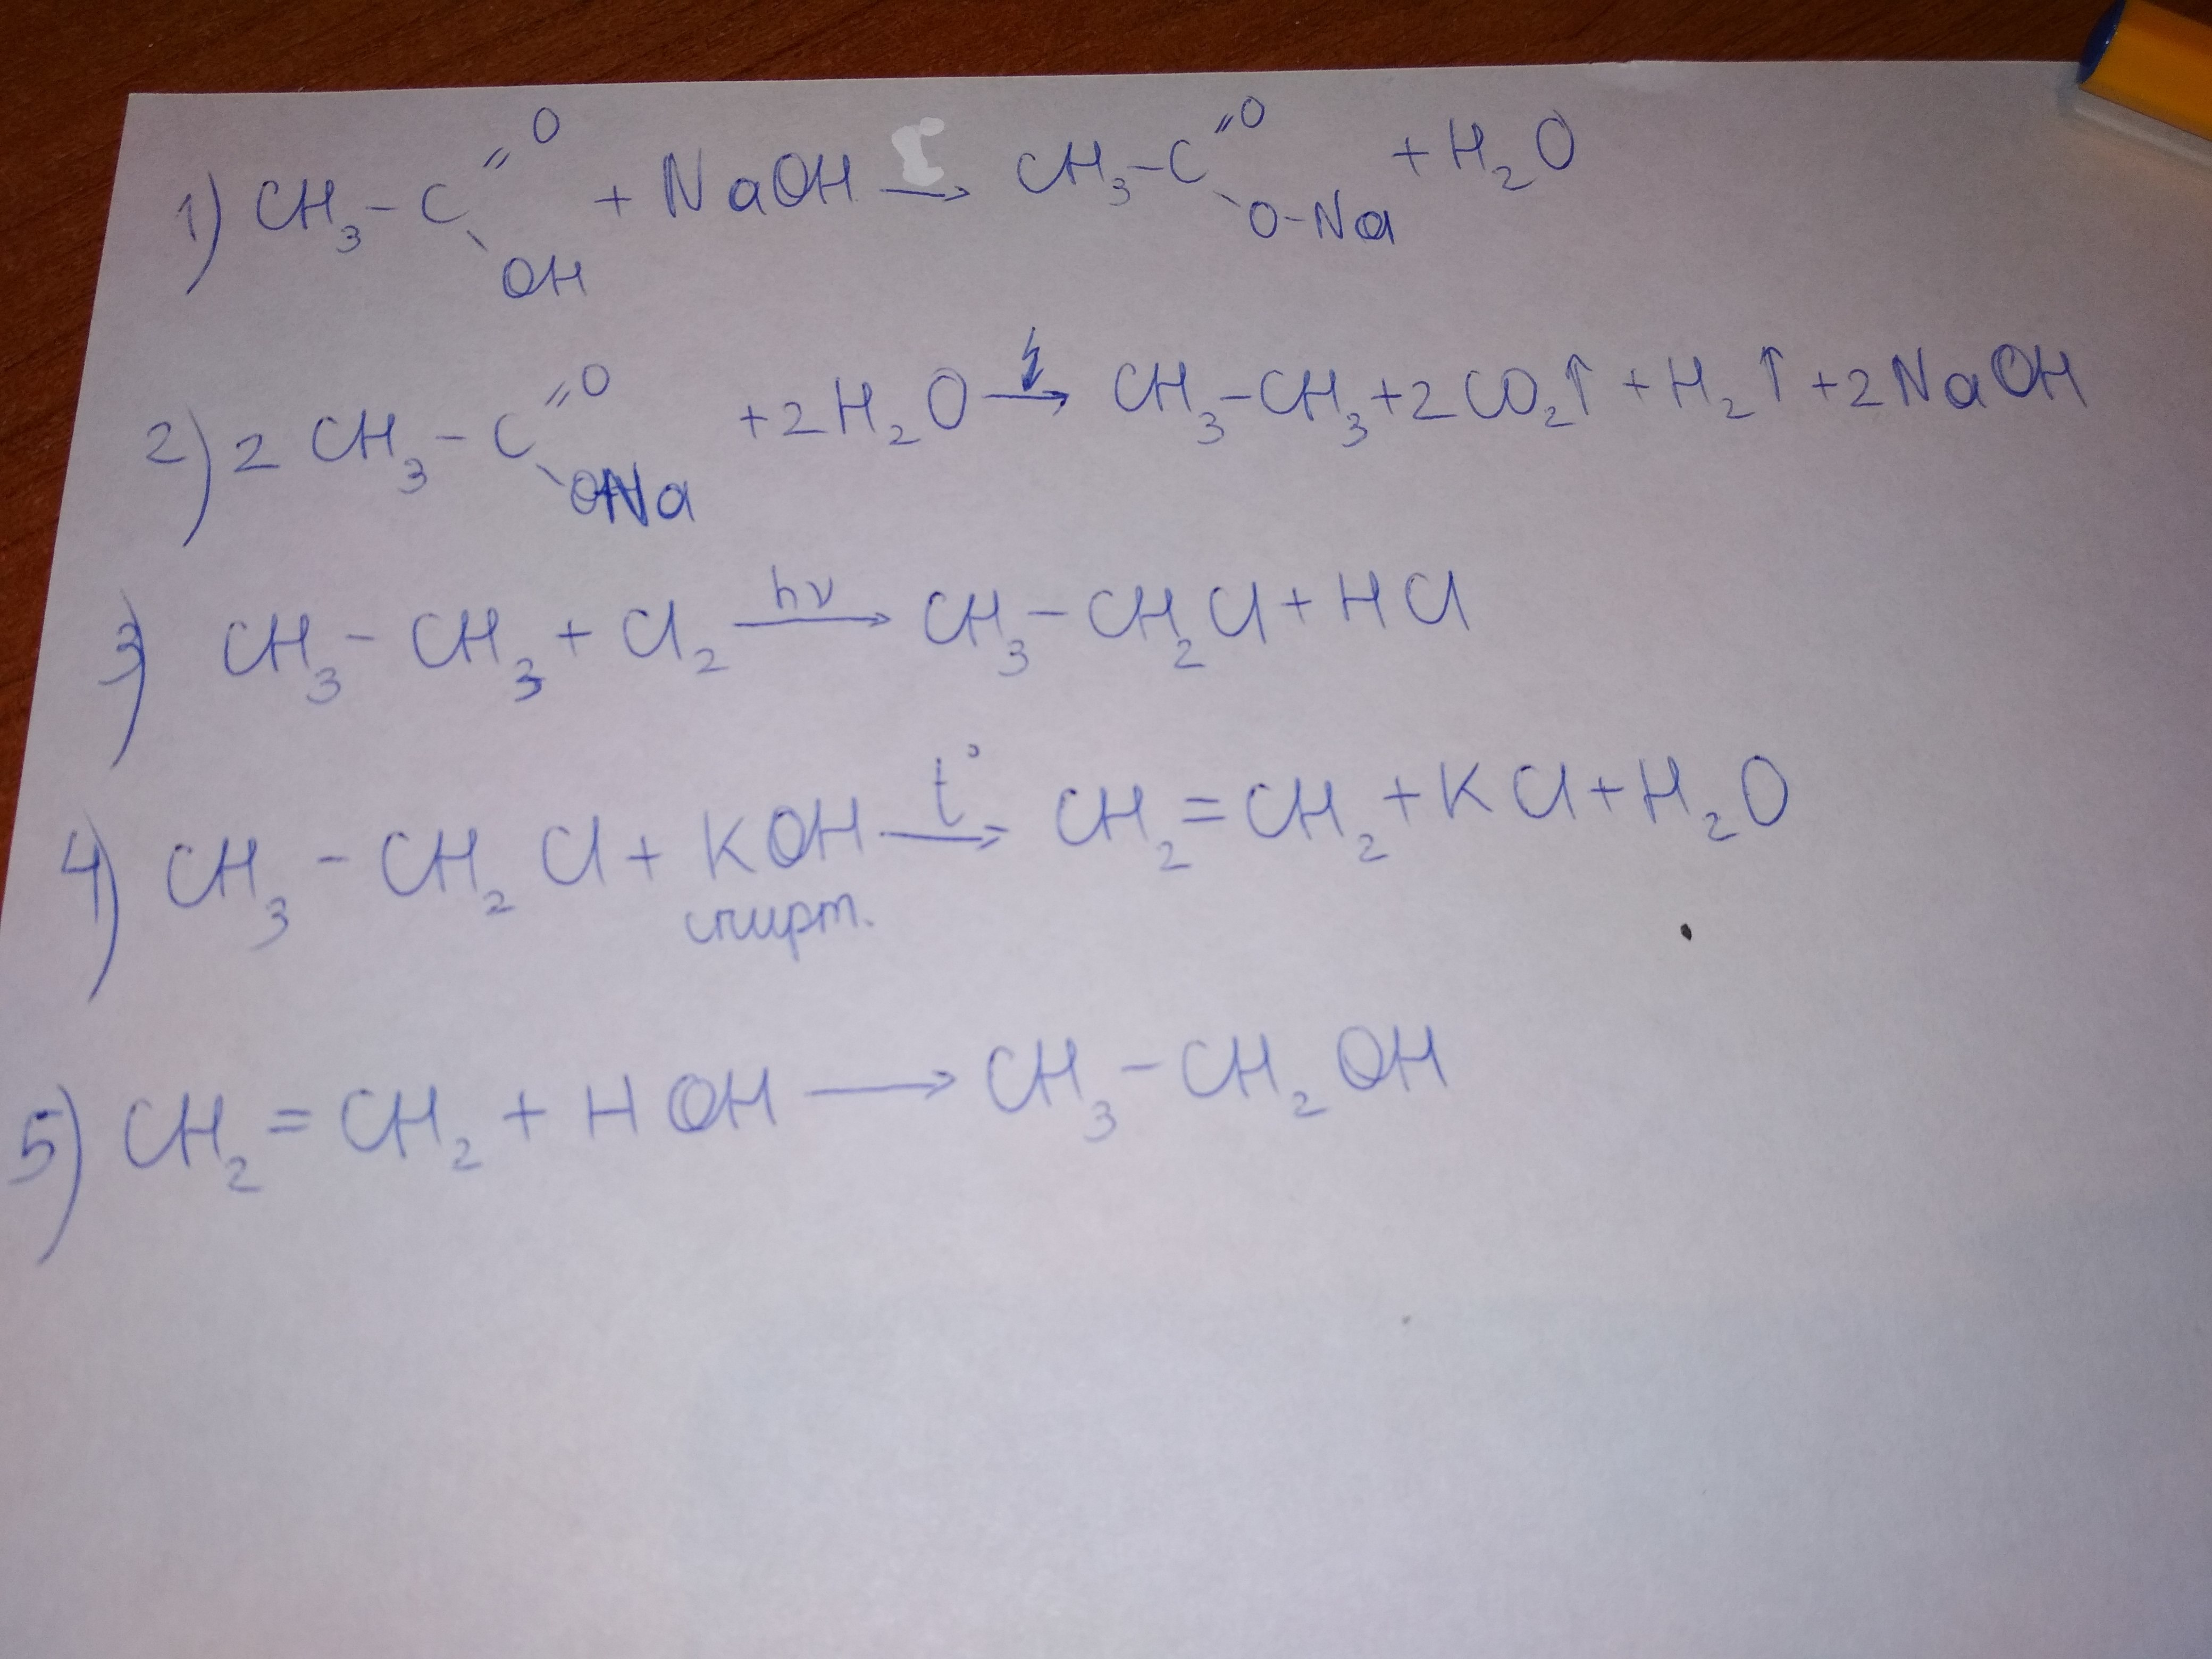 1) CH₃-C(=O)(-OH) + NaOH → CH₃-C(=O)(-O-Na) + H₂O
2) 2CH₃-C(=O)(-ONa) + 2H₂O → CH₃-CH₃ + 2CO₂↑ + H₂↑ + 2NaOH
3) CH₃-CH₃ + Cl₂ hν→ CH₃-CH₂Cl + HCl
4) CH₃-CH₂Cl + KOH t°→ CH₂=CH₂ + KCl + H₂O
спирт.
5) CH₂=CH₂ + HOH → CH₃-CH₂OH